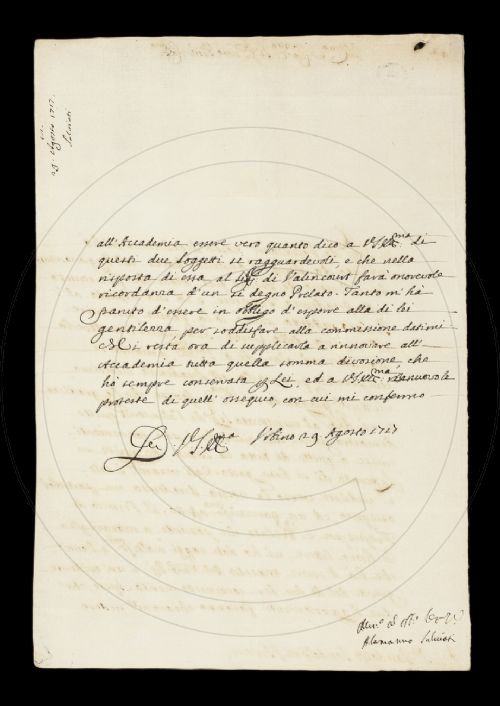 29. Agosto 1717.
Salviati
all'Accademia essere vero quanto dico a V.S. Ill.ma di
questi due Soggetti sì ragguardevoli e che nella
risposta di essa al Sig. di Valincourt farà onorevole
ricordanza d'un sì degno Prelato. Tanto m'hà
paruto d'essere in obbligo d'esporre alla di lei
gentilezza per soddisfare alla commissione datami
e Mi resta ora di supplicarla a rinnovare all'
Accademia tutta quella somma divozione, che
hò sempre conservata p Lei, ed a V.S. Ill.ma rinnuovo le
proteste di quell'ossequio, con cui mi confermo
Di V.S. Ill.ma Urbino 29 Agosto 1717
Alamanno Salviati